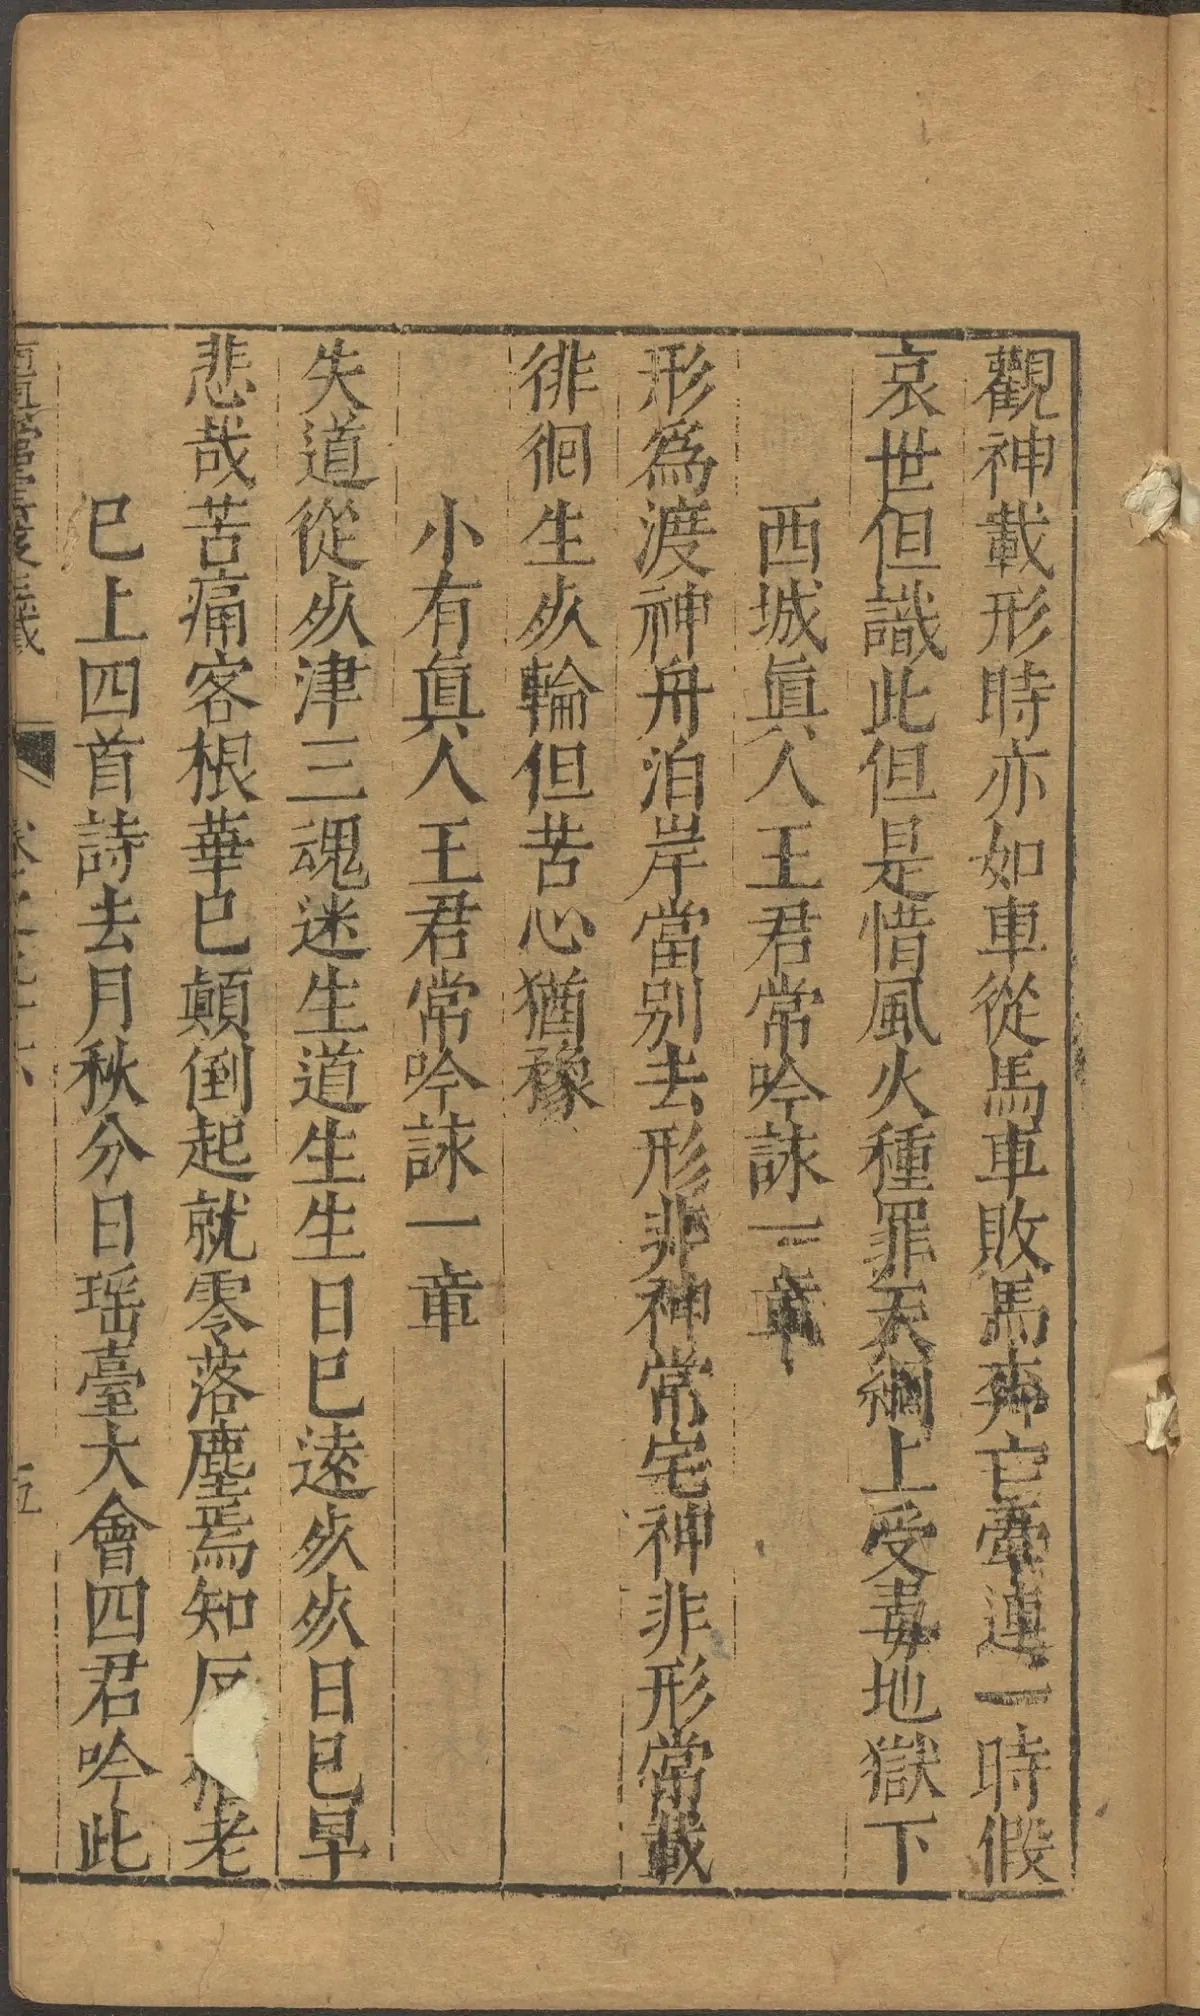 觀神載形時亦如車從馬車敗馬奔亡牽連一時假
哀世但識此但是惜風火種罪天網上受毒地獄下
西城眞人王君常吟詠一章
形爲渡神舟泊岸當別去形非神常宅神非形常載
徘徊生死輪但苦心猶豫
小有眞人王君常吟詠一章
失道從死津三魂迷生道生生日巳遠死死日巳早
悲哉苦痛客根華巳顛倒起就零落塵焉知反老
巳上四首詩去月秋分日瑤臺大會四君吟此